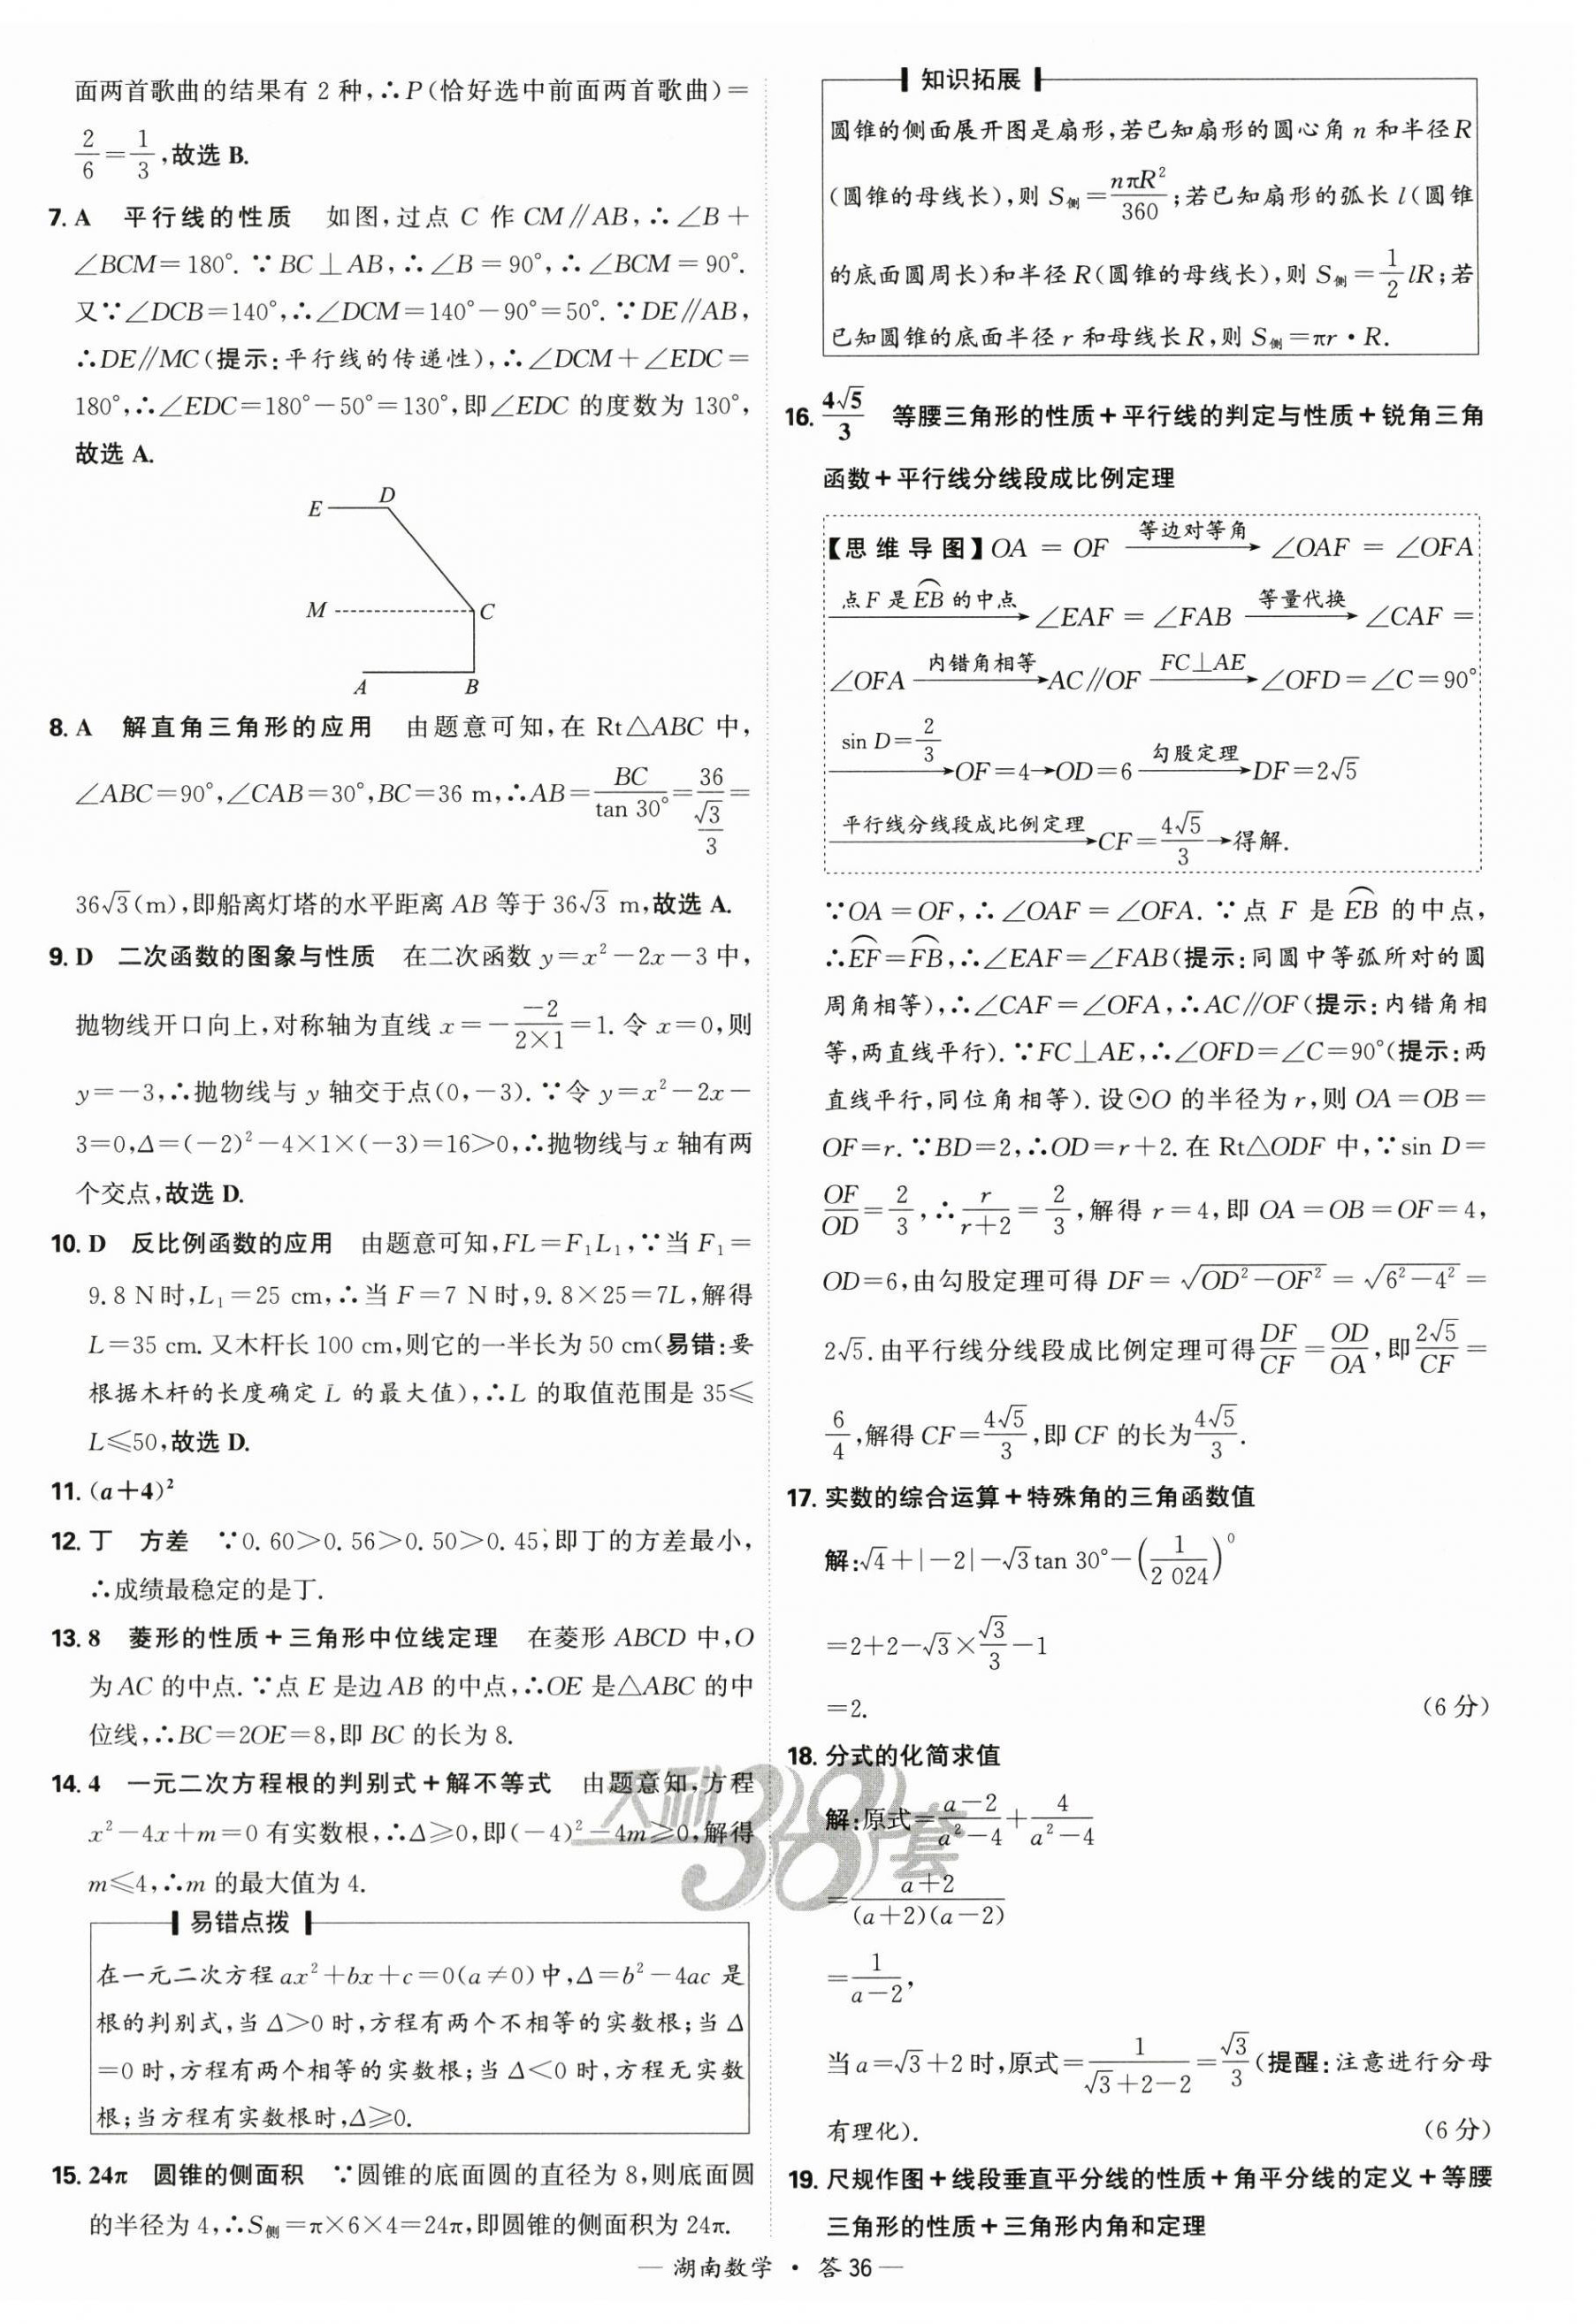 面两首歌曲的结果有 2 种,∴P(恰好选中前面两首歌曲)=
2/6=1/3,故选 B.
7. A 平行线的性质 如图,过点 C 作 CM∥AB,∴∠B+
∠BCM=180°.∵BC⊥AB,∴∠B=90°,∴∠BCM=90°.
又∵∠DCB=140°,∴∠DCM=140°-90°=50°.∵DE∥AB,
∴DE∥MC(提示:平行线的传递性),∴∠DCM+∠EDC=
180°,∴∠EDC=180°-50°=130°,即∠EDC 的度数为 130°,
故选 A.
E D
M C
A B
8. A 解直角三角形的应用 由题意可知,在 Rt△ABC 中,
∠ABC=90°,∠CAB=30°,BC=36 m,∴AB=BC/tan 30°=36/(√3/3)=
36√3(m),即船离灯塔的水平距离 AB 等于 36√3 m,故选 A.
9. D 二次函数的图象与性质 在二次函数 y=x²-2x-3 中,
抛物线开口向上,对称轴为直线 x=-(-2)/(2×1)=1.令 x=0,则
y=-3,∴抛物线与 y 轴交于点(0,-3).∵令 y=x²-2x-
3=0,Δ=(-2)²-4×1×(-3)=16>0,∴抛物线与 x 轴有两
个交点,故选 D.
10. D 反比例函数的应用 由题意可知,FL=F₁L₁,∵当 F₁=
9.8 N时,L₁=25 cm,∴当 F=7 N 时,9.8×25=7L,解得
L=35 cm.又木杆长 100 cm,则它的一半长为 50 cm(易错:要
根据木杆的长度确定 L 的最大值),∴L 的取值范围是 35≤
L≤50,故选 D.
11. (a+4)²
12. 丁 方差 ∵0.60>0.56>0.50>0.45,即丁的方差最小,
∴成绩最稳定的是丁.
13. 8 菱形的性质+三角形中位线定理 在菱形 ABCD 中,O
为 AC 的中点.∵点 E 是边 AB 的中点,∴OE 是△ABC 的中
位线,∴BC=2OE=8,即 BC 的长为 8.
14. 4 一元二次方程根的判别式+解不等式 由题意知,方程
x²-4x+m=0 有实数根,∴Δ≥0,即(-4)²-4m≥0,解得
m≤4,∴m 的最大值为 4.
易错点拨
在一元二次方程 ax²+bx+c=0(a≠0)中,Δ=b²-4ac 是
根的判别式,当 Δ>0 时,方程有两个不相等的实数根;当 Δ
=0 时,方程有两个相等的实数根;当 Δ<0 时,方程无实数
根;当方程有实数根时,Δ≥0.
15. 24π 圆锥的侧面积 ∵圆锥的底面圆的直径为 8,则底面圆
的半径为 4,∴S侧=π×6×4=24π,即圆锥的侧面积为 24π.
知识拓展
圆锥的侧面展开图是扇形,若已知扇形的圆心角 n 和半径 R
(圆锥的母线长),则 S侧=nπR²/360;若已知扇形的弧长 l(圆锥
的底面圆周长)和半径 R(圆锥的母线长),则 S侧=1/2 lR;若
已知圆锥的底面半径 r 和母线长 R,则 S侧=πr·R.
16. 4√5/3 等腰三角形的性质+平行线的判定与性质+锐角三角
函数+平行线分线段成比例定理
【思维导图】OA=OF —等边对等角→ ∠OAF=∠OFA
—点 F 是 EB⌒ 的中点→ ∠EAF=∠FAB —等量代换→ ∠CAF=
∠OFA —内错角相等→ AC∥OF —FC⊥AE→ ∠OFD=∠C=90°
—sin D=2/3→ OF=4→OD=6 —勾股定理→ DF=2√5
—平行线分线段成比例定理→ CF=4√5/3→得解.
∵OA=OF,∴∠OAF=∠OFA.∵点 F 是 EB⌒ 的中点,
∴EF⌒=FB⌒,∴∠EAF=∠FAB(提示:同圆中等弧所对的圆
周角相等),∴∠CAF=∠OFA,∴AC∥OF(提示:内错角相
等,两直线平行).∵FC⊥AE,∴∠OFD=∠C=90°(提示:两
直线平行,同位角相等).设⊙O 的半径为 r,则 OA=OB=
OF=r.∵BD=2,∴OD=r+2.在 Rt△ODF 中,∵sin D=
OF/OD=2/3,∴r/(r+2)=2/3,解得 r=4,即 OA=OB=OF=4,
OD=6,由勾股定理可得 DF=√(OD²-OF²)=√(6²-4²)=
2√5.由平行线分线段成比例定理可得DF/CF=OD/OA,即2√5/CF=
6/4,解得 CF=4√5/3,即 CF 的长为4√5/3.
17. 实数的综合运算+特殊角的三角函数值
解:√4+|-2|-√3tan 30°-(1/2 024)⁰
=2+2-√3×√3/3-1
=2. (6 分)
18. 分式的化简求值
解:原式=(a-2)/(a²-4)+4/(a²-4)
=(a+2)/((a+2)(a-2))
=1/(a-2),
当 a=√3+2 时,原式=1/(√3+2-2)=√3/3(提醒:注意进行分母
有理化). (6 分)
19. 尺规作图+线段垂直平分线的性质+角平分线的定义+等腰
三角形的性质+三角形内角和定理
天利38套
— 湖南数学 · 答 36 —